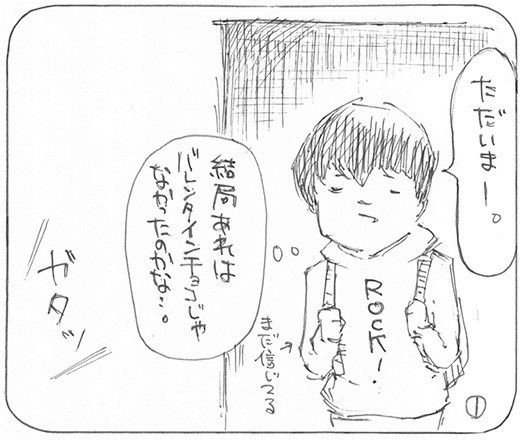 ただいまー。
結局あれは
バレンタインチョコじゃ
なかったのかな…。
ROCK!
まだ信じてる
ガタッ
①